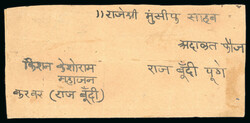 ।।राजेश्री मुंसीफ साहब
अदालत फौज
राज बूँदी पूगे
किशन केशोराम
महाजन
करवर (राज बूँदी)